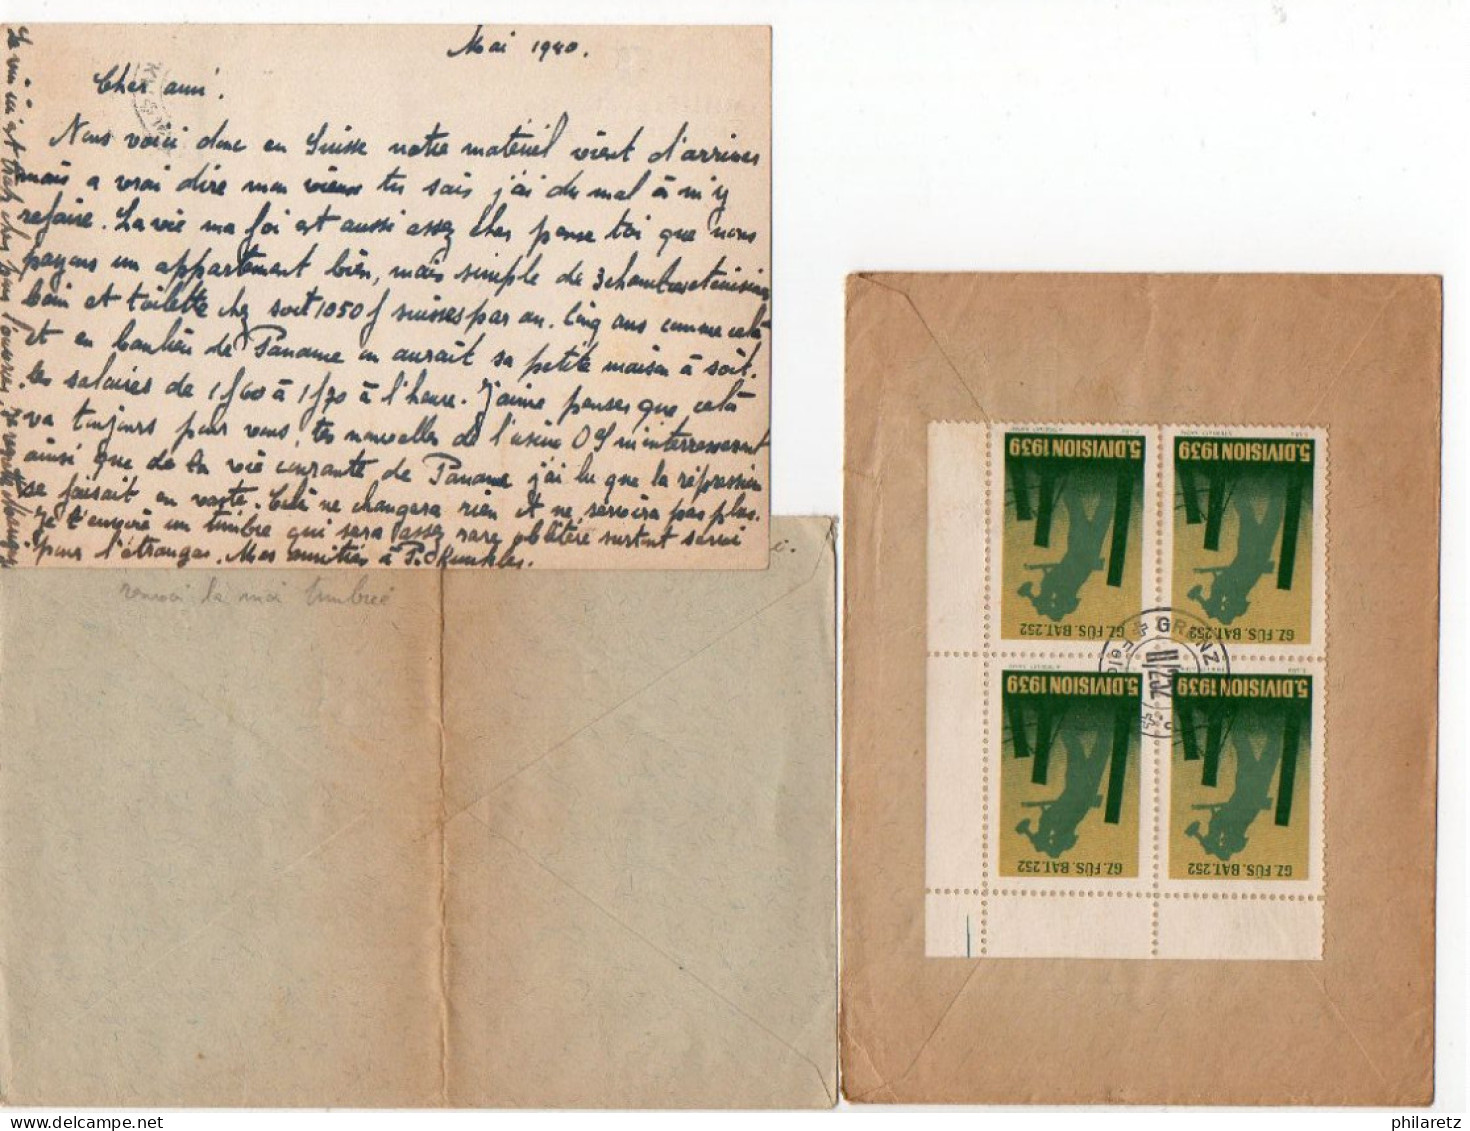 Mai 1940.
Cher ami.
Nous voici donc en Suisse notre matériel vient d'arriver
mais a vrai dire mon vieux tu sais j'ai du mal à m'y
refaire. La vie ma foi est aussi assez cher pense toi que nous
payons un appartement bien, mais simple de 3 chambres et cuisine
bain et toilette chez soit 1050 f suisses par an. Cinq ans comme celà
et en banlieu de Paname on aurait sa petite maison à soit.
les salaires de 1 f 60 à 1 f 70 à l'heure. J'aime penser que celà
va toujours pour vous, tes nouvelles de l'usine m'interressent
ainsi que de la vie courante de Paname j'ai lu que la répression
se faisait en vaste. Celà ne changera rien et ne servira pas plus.
Je t'envoie un timbre qui sera assez rare oblitéré surtout servi
pour l'étranger. Mes amitiés à
Le vin ici est trop cher pour l'ouvrier, je regrette
renvoi la moi timbrée
5. DIVISION 1939
GZ. FÜS. BAT. 252
5. DIVISION 1939
GZ. FÜS. BAT. 252
5. DIVISION 1939
GZ. FÜS. BAT. 252
5. DIVISION 1939
GZ. FÜS. BAT. 252
GRENZ
II/252
philaretz